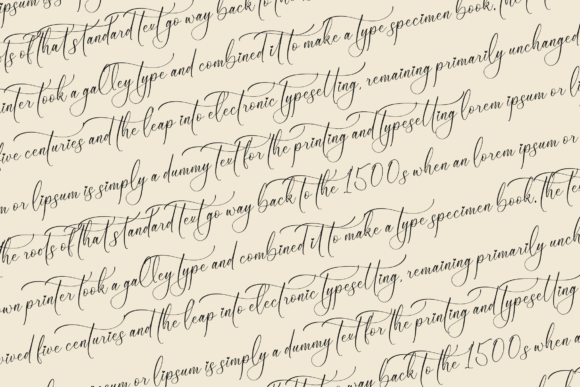 ipsum is
roots of that standard text go way back to the
printer took a galley type and combined it to make a type specimen book. the
five centuries and the leap into electronic typesetting, remaining primarily unchanged
or lipsum is simply a dummy text for the printing and typesetting lorem ipsum or
the roots of that standard text go way back to the 1500s when an lorem ipsum or
printer took a galley type and combined it to make a type specimen book. the
five centuries and the leap into electronic typesetting, remaining primarily
or lipsum is simply a dummy text for the printing and typesetting
back to the 1500s when